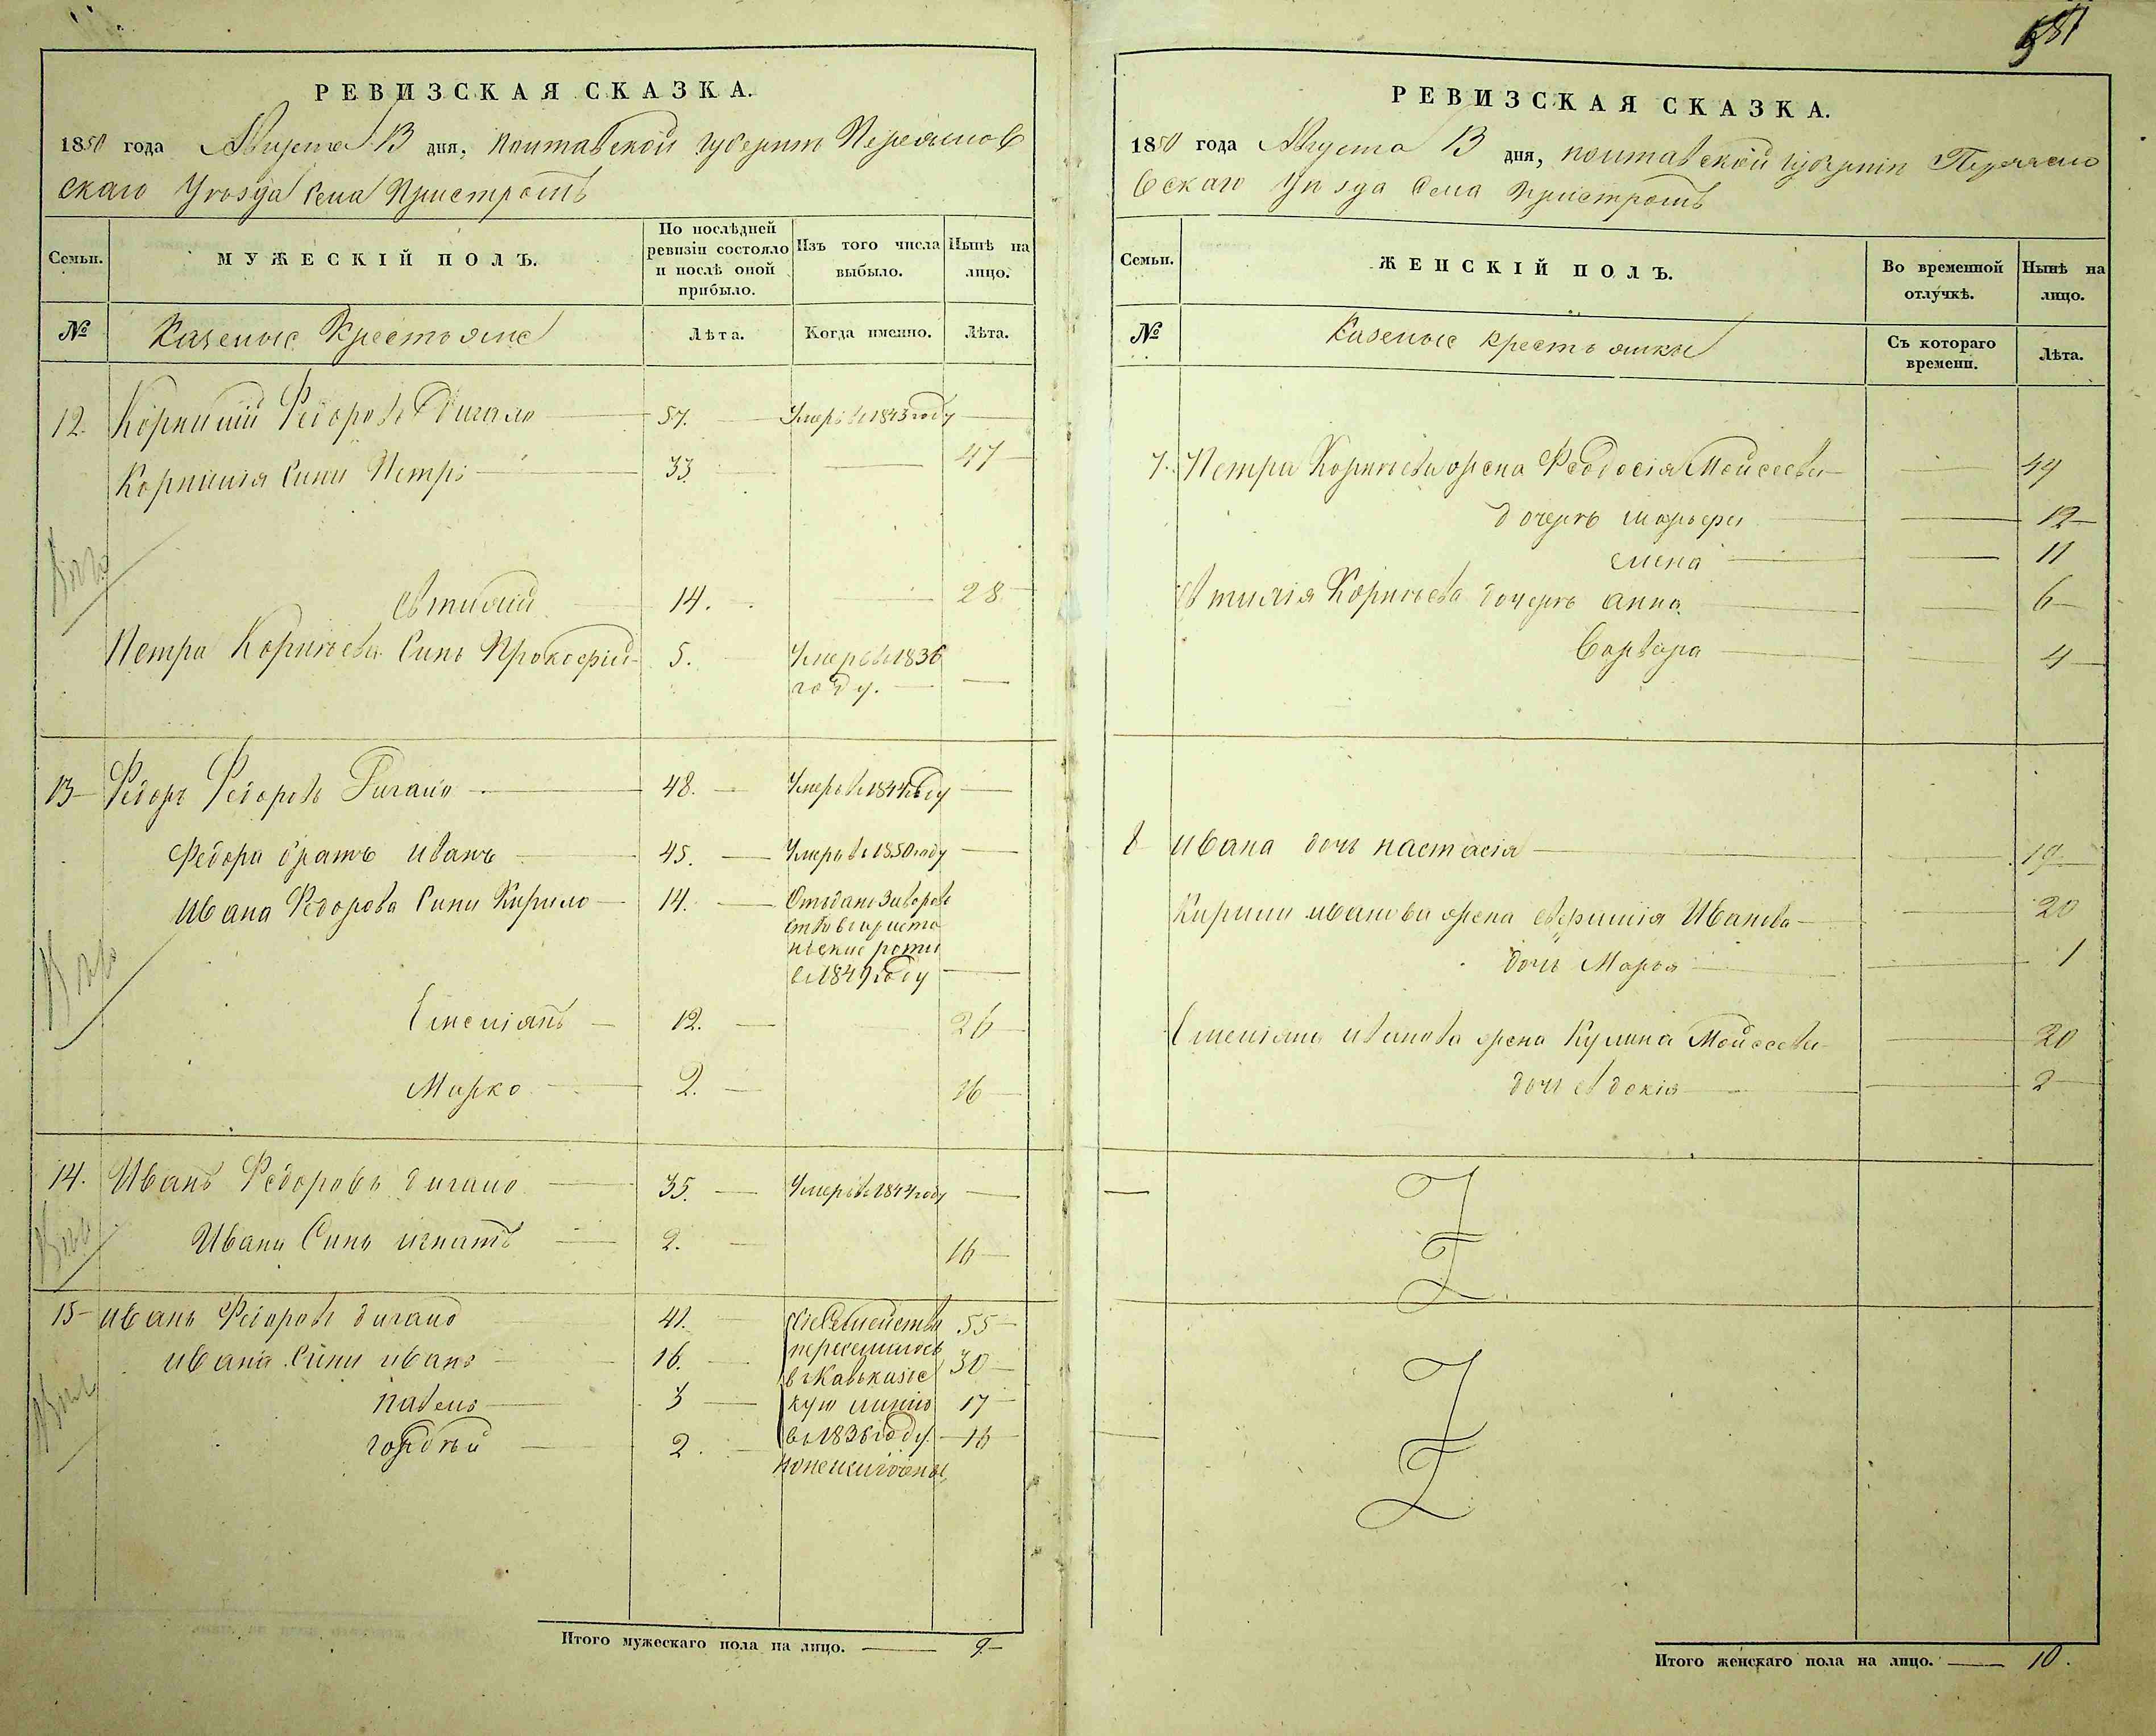 581
РЕВИЗСКАЯ СКАЗКА.
1850 года Августа 13 дня, Полтавской губернии Переяслов
скаго Уезда Села Пристромъ
Семьи.
МУЖЕСКІЙ ПОЛЪ.
По послѣдней
ревизіи состояло
и послѣ оной
прибыло.
Изъ того числа
выбыло.
Нынѣ на
лицо.
№
Казеные Крестьяне
Лѣта.
Когда именно.
Лѣта.
12. Корнилій Федоровъ Дигало 57. Умеръ в 1843 году
Корнилия Сины Петръ 33. 47
Евтихий 14. 28
Петра Корнѣева Синъ Прокофий 5. Умеръ в 1836
году.
13 Федоръ Федоровъ Дигало 48. Умеръ в 1844 году
Федора братъ иванъ 45. Умеръ в 1850 году
Ивана Федорова Сини Кирило 14. Отдан за воров
ство в ариста
нские роты
в 1849 году
Емелiянъ 12. 26
Марко 2. 16
14. Иванъ Федоровъ дигало 35. Умеръ в 1844 году
Ивана Синъ игнатъ 2. 16
15 иванъ Федоровъ дигало 41. 55
ивана Сини иванъ 16. переселились 30
в Кавказс
павелъ 3 кую линию 17
гордѣй 2. в 1836 году. 16
Итого мужескаго пола на лицо. 9
РЕВИЗСКАЯ СКАЗКА.
1850 года Августа 13 дня, полтавской губерніи Переясло
вскаго Уѣзда Села Пристромъ
Семьи.
ЖЕНСКІЙ ПОЛЪ.
Во временной
отлучкѣ.
Нынѣ на
лицо.
№
Казеные крестьянки
Съ котораго
времени.
Лѣта.
7. Петра Корнѣева жена Феодосія Мойсеева 44
дочери марьфа 12
елена 11
Корнѣева дочери анна 6
варвара 4
8 ивана дочь настасія 19
Кирили иванова жена Иванова 20
дочь Марья 1
Емелiяна иванова жена Кулина Мойсеева 20
дочь евдокія 2
Итого женскаго пола на лицо. 10.